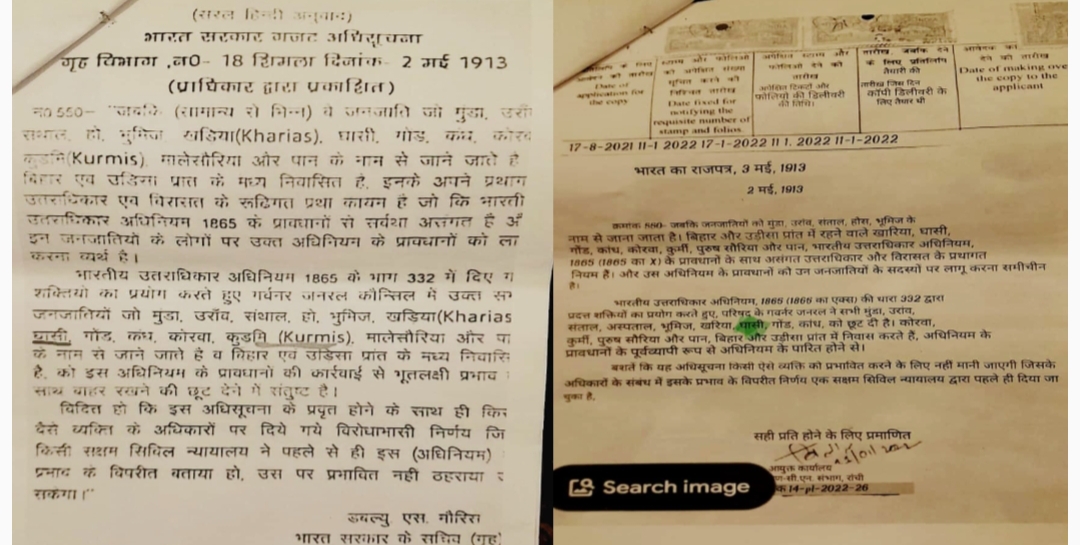 (सरल हिन्दी अनुवाद)
भारत सरकार गजट अधिसूचना
गृह विभाग ,न0- 18 शिमला दिनांक- 2 मई 1913
(प्राधिकार द्वारा प्रकाशित)
न0 550- "जबकि (सामान्य से भिन्न) वे जनजाति जो मुंडा,
संथाल, हो, भुमिज खडिया(Kharias), घासी, गोंड़, कंध, कोरवा
कुडमि(Kurmis), मालेसौरिया और पान के नाम से जाने जाते है
बिहार एवं उडिसा प्रांत के मध्य निवासित है, इनके अपने प्रथाग
उत्तराधिकार एवं विरासत के रूढिगत प्रथा कायम है जो कि भारती
उत्तराधिकार अधिनियम 1865 के प्रावधानों से सर्वथा असंगत है
इन जनजातियों के लोगों पर उक्त अधिनियम के प्रावधानों को ला
करना व्यर्थ है।
भारतीय उतराधिकार अधिनियम 1865 के भाग 332 में दिए ग
शक्तियों का प्रयोग करते हुए गर्वनर जनरल कौन्सिल में उक्त
जनजातियों जो मुंडा, उराँव, संथाल, हो, भुमिज, खडिया(Kharias
घासी, गोंड़, कंध, कोरवा, कुडमि (Kurmis), मालेसौरिया और पा
के नाम से जाने जाते है व बिहार एवं उडिसा प्रांत के मध्य निवासि
है, को इस अधिनियम के प्रावधानों की कार्रवाई से भूतलक्षी प्रभाव
साथ बाहर रखने की छूट देने में संतुष्ट है।
विदित हो कि इस अधिसूचना के प्रवृत होने के साथ ही
वैसे व्यक्ति के अधिकारों पर दिये गये विरोधाभासी निर्णय जि
किसी सक्षम सिविल न्यायालय ने पहले से ही इस (अधिनियम)
प्रभाव के विपरीत बताया हो, उस पर प्रभावित नही ठहराया
सकेगा।"
डबल्यु एस. मौरिस
भारत सरकार के सचिव (गृह)
Date of application for the copy
Date fixed for notifying the requisite number of stamp and folios.
अपेक्षित स्टाम्प और फोलिओ देने की तारीख
तारीख, जबकि देने के लिए प्रतिलिपि तैयारी की
तारीख जिस दिन कॉपी डिलीवरी के लिए तैयार थी
Date of making over the copy to the applicant
17-8-2021 11-1 2022 17-1-2022 11 1. 2022 11-1-2022
भारत का राजपत्र, 3 मई, 1913
2 मई, 1913
जबकि जनजातियों को मुंडा, उरांव, संताल, होस, भूमिज के
नाम से जाना जाता है। बिहार और उड़ीसा प्रांत में रहने वाले खारिया, घासी,
गोंड, कांध, कोरवा, कुर्मी, पुरुष सौरिया और पान, भारतीय उत्तराधिकार अधिनियम,
1865 (1865 का X) के प्रावधानों के साथ असंगत उत्तराधिकार और विरासत के प्रथागत
नियम हैं। और उस अधिनियम के प्रावधानों को उन जनजातियों के सदस्यों पर लागू करना समीचीन
है।
भारतीय उत्तराधिकार अधिनियम, 1865 (1865 का एक्स) की धारा 332 द्वारा
प्रदत्त शक्तियों का प्रयोग करते हुए, परिषद के गवर्नर जनरल ने सभी मुंडा, उरांव,
संताल, अस्पताल, भूमिज, खरिया, घासी, गोंड, कांध, को छूट दी है। कोरवा,
कुर्मी, पुरुष सौरिया और पान, बिहार और उड़ीसा प्रांत में निवास करते हैं, अधिनियम के
प्रावधानों के पूर्वव्यापी रूप से अधिनियम के पारित होने से।
बशर्ते कि यह अधिसूचना किसी ऐसे व्यक्ति को प्रभावित करने के लिए नहीं मानी जाएगी जिसके
अधिकारों के संबंध में इसके प्रभाव के विपरीत निर्णय एक सक्षम सिविल न्यायालय द्वारा पहले ही दिया जा
चुका है,
सही प्रति होने के लिए प्रमाणित
आयुक्त कार्यालय
सी.एन. संभाग, रांची
14-pl-2022-26
Search image